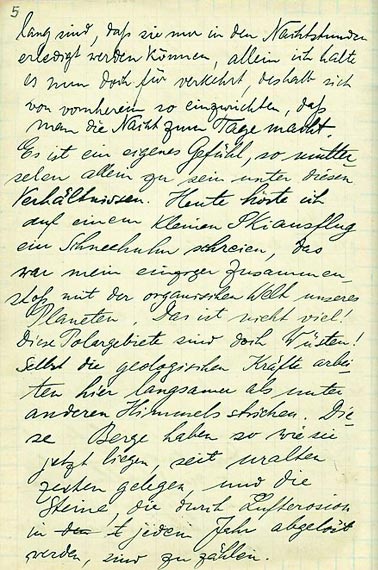 5
lang sind, daß sie nur in den Nachtstunden
erledigt werden können, allein ich halte
es nun doch für verkehrt, deshalb sich
von vornherein so einzurichten, daß
man die Nacht zum Tage macht.
Es ist ein eigenes Gefühl, so mutter
selen allein zu sein unter diesen
Verhältnissen. Heute hörte ich
auf einem kleinen Skiausflug
ein Schneehuhn schreien, das
war mein einziger Zusammen-
stoß mit der organischen Welt unseres
Planeten. Das ist nicht viel!
Diese Polargebiete sind doch Wüsten!
Selbst die geologischen Kräfte arbei-
ten hier langsamer als unter
anderen Himmelsstrichen. Die-
se Berge haben so wie sie
jetzt liegen, seit uralten
Zeiten gelegen, und die
Steine, die durch Lufterosion
in jedem Jahr abgelöst
werden, sind zu zählen.